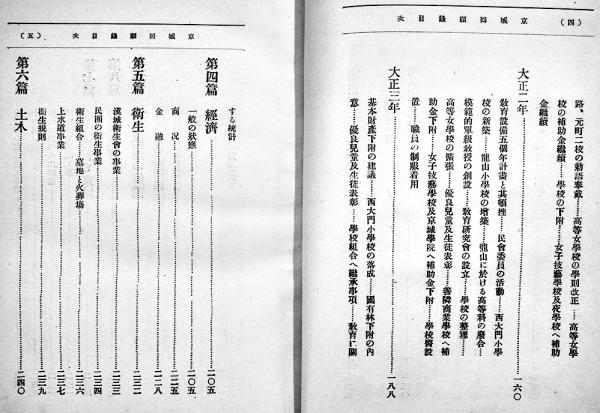 (四) 京城回顧錄目次
路、元町二校の勅語奉戴……高等女學校の學則改正……高等女學
校の補助金繼續……學校の下附……女子技藝學校及夜學校へ補助
金繼續
大正二年……一六〇
教育設備五個年計畫と其頓挫……民會委員の活動……西大門小學
校の新築……龍山小學校の增築……龍山に於ける高等科の廢合……
模範的單級教授の創設……教育研究會の設立……學校の整理……
高等女學校の擴張……優良兒童及生徒表彰……善隣商業學校へ補
助金下附……女子技藝學校及京城學院へ補助金下附……學校醫設
置……職員の制服着用
大正三年……一八八
基本財產下附の建議……西大門小學校の落成……國有林下附の內
意……優良兒童及生徒表彰……學校組合へ繼承事項……教育に關
京城回顧錄目次 (五)
する統計
第四篇 經濟……二〇五
一般の狀態……二〇五
商況……二二五
金融……二二八
第五篇 衛生……二三二
漢城衛生會の事業……二三三
民團の衛生事業……二三四
衛生組合……墓地と火葬場……二三六
上水道事業……二三七
衛生規則……二三九
第六篇 土木……二四〇